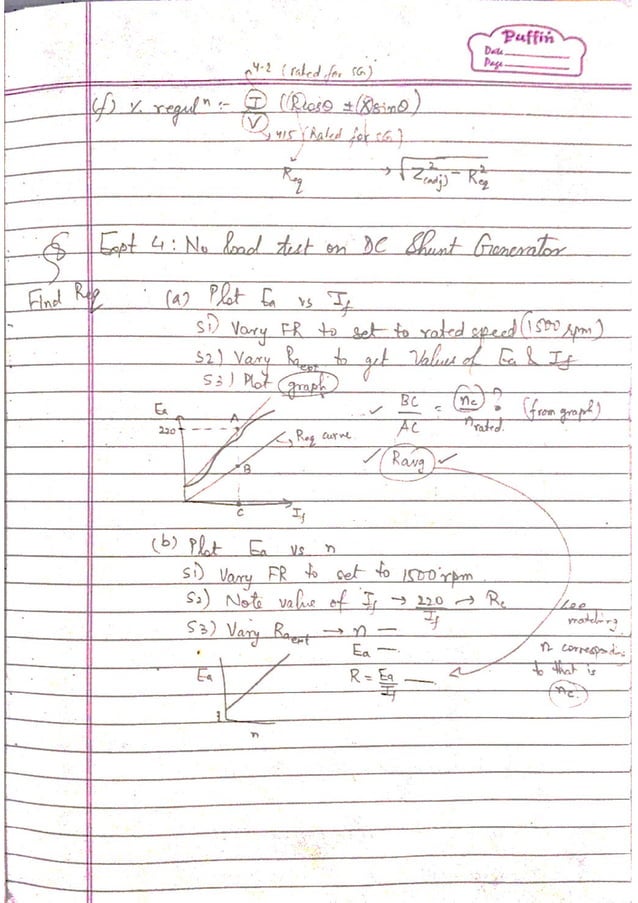 Puffin
Date
Page
4.2 (rated for SG)
(f) % regulⁿ :- I/V (Rcosθ ± Xsinθ)
415 (Rated for SG)
Req → √(Z²(adj) - R²eq)
Expt 4 : No load test on DC Shunt Generator
Find Req
(a) Plot Ea vs If
S1) Vary FR to set to rated speed (1500 rpm)
S2) Vary Raext to get Values of Ea & If
S3) Plot graph
Ea
220
A
Req curve
B
C
If
✓ BC/AC = nc/nrated ? (from graph)
✓ Ravg ✓
(b) Plot Ea vs n
S1) Vary FR to set to 1500 rpm
S2) Note value of If → 220/If → Rc
S3) Vary Raext → n —
Ea —
R = Ea/If —
see matching
n corresponding
to that is
nc
Ea
n